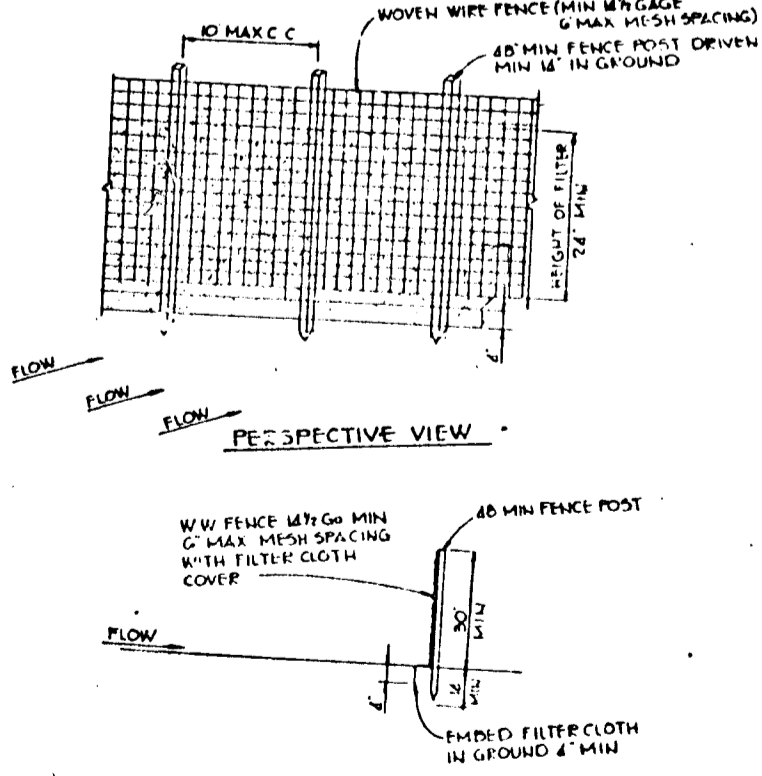 WOVEN WIRE FENCE (MIN 14½ GAGE
6" MAX MESH SPACING)
10' MAX C C
48" MIN FENCE POST DRIVEN
MIN 16" IN GROUND
HEIGHT OF FILTER
24" MIN
FLOW
FLOW
FLOW
PERSPECTIVE VIEW
W W FENCE 14½ Ga MIN
6" MAX MESH SPACING
WITH FILTER CLOTH
COVER
48 MIN FENCE POST
FLOW
30"
MIN
MIN
EMBED FILTER CLOTH
IN GROUND 4" MIN